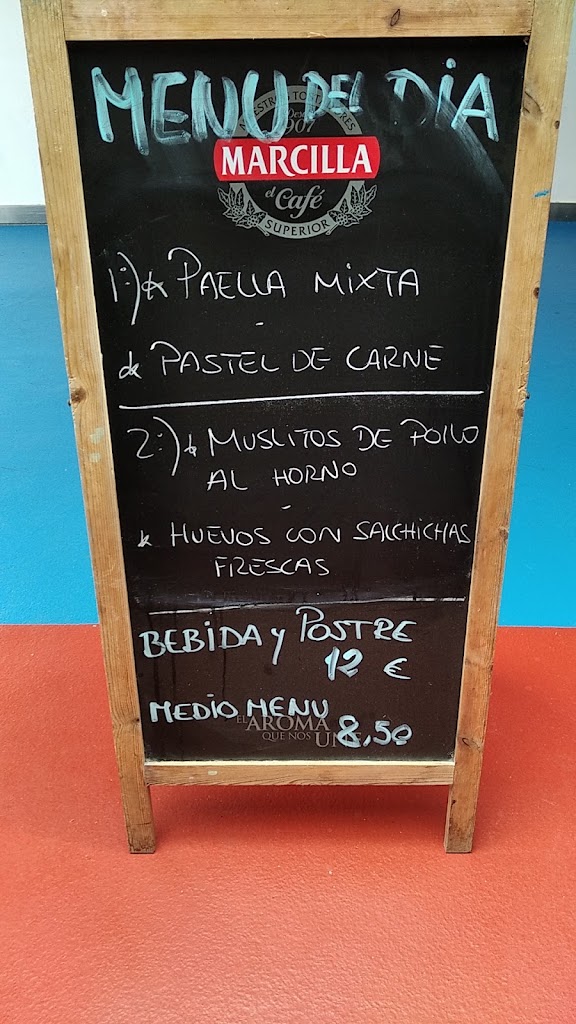 MENU DEL DIA
NUESTROS TOSTADORES
Desde
1907
MARCILLA
el Café
SUPERIOR
1:) * PAELLA MIXTA
-
* PASTEL DE CARNE
2:) * MUSLITOS DE POLLO
AL HORNO
-
* HUEVOS CON SALCHICHAS
FRESCAS
BEBIDA Y POSTRE
12 €
MEDIO MENU
8,50
EL AROMA
QUE NOS UNE